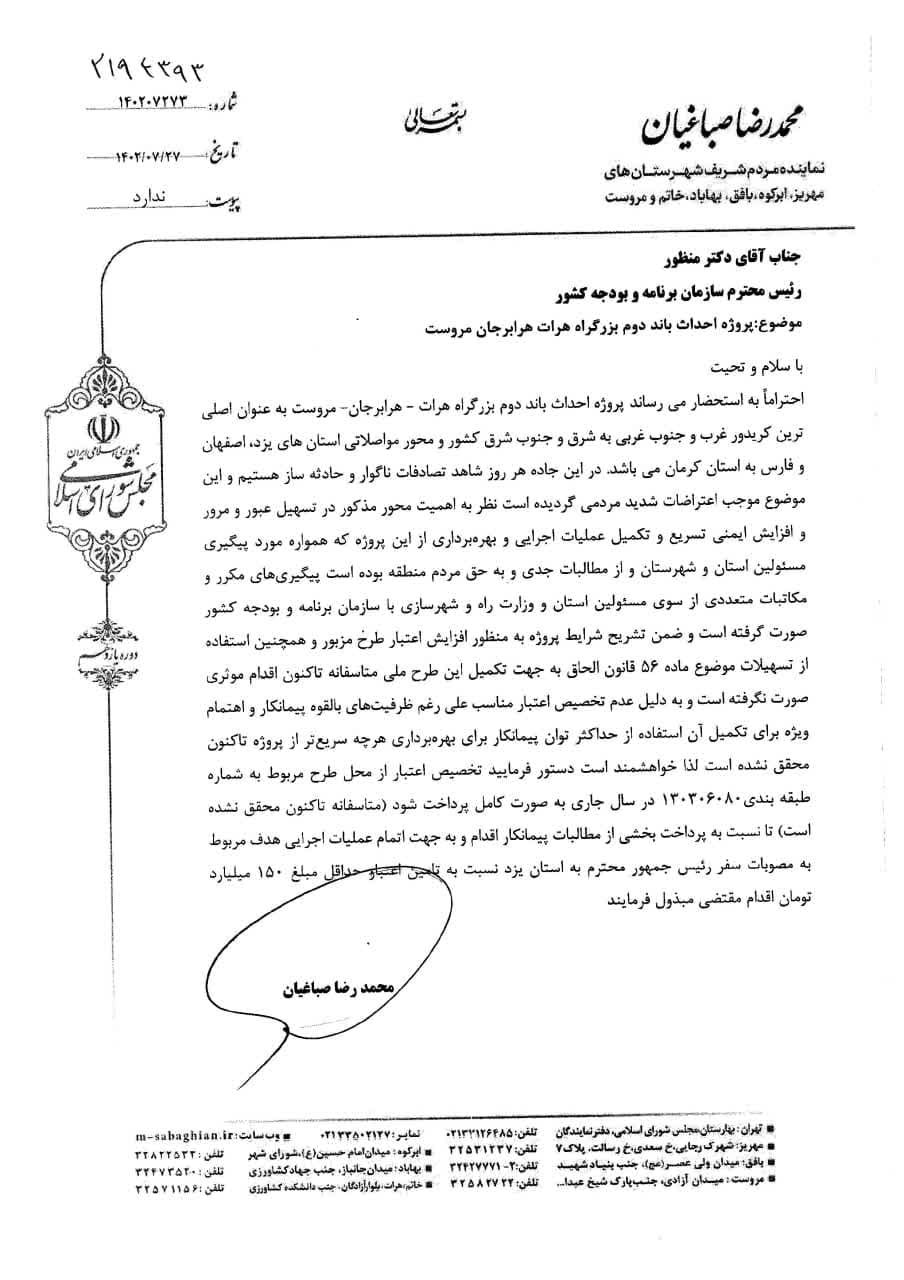 ۲۱۹۴۳۹۳
شماره: ۱۴۰۲۰۷۲۷۳
تاریخ: ۱۴۰۲/۰۷/۲۷
پیوست: ندارد
بسمه تعالی
محمدرضا صباغیان
نماینده مردم شریف شهرستان های
مهریز، ابرکوه، بافق، بهاباد، خاتم و مروست
جناب آقای دکتر منظور
رئیس محترم سازمان برنامه و بودجه کشور
موضوع:پروژه احداث باند دوم بزرگراه هرات هرابرجان مروست
با سلام و تحیت
احتراماً به استحضار می رساند پروژه احداث باند دوم بزرگراه هرات - هرابرجان- مروست به عنوان اصلی
ترین کریدور غرب و جنوب غربی به شرق و جنوب شرق کشور و محور مواصلاتی استان های یزد، اصفهان
و فارس به استان کرمان می باشد. در این جاده هر روز شاهد تصادفات ناگوار و حادثه ساز هستیم و این
موضوع موجب اعتراضات شدید مردمی گردیده است نظر به اهمیت محور مذکور در تسهیل عبور و مرور
و افزایش ایمنی تسریع و تکمیل عملیات اجرایی و بهره‌برداری از این پروژه که همواره مورد پیگیری
مسئولین استان و شهرستان و از مطالبات جدی و به حق مردم منطقه بوده است پیگیری‌های مکرر و
مکاتبات متعددی از سوی مسئولین استان و وزارت راه و شهرسازی با سازمان برنامه و بودجه کشور
صورت گرفته است و ضمن تشریح شرایط پروژه به منظور افزایش اعتبار طرح مزبور و همچنین استفاده
از تسهیلات موضوع ماده ۵۶ قانون الحاق به جهت تکمیل این طرح ملی متاسفانه تاکنون اقدام موثری
صورت نگرفته است و به دلیل عدم تخصیص اعتبار مناسب علی رغم ظرفیت‌های بالقوه پیمانکار و اهتمام
ویژه برای تکمیل آن استفاده از حداکثر توان پیمانکار برای بهره‌برداری هرچه سریع‌تر از پروژه تاکنون
محقق نشده است لذا خواهشمند است دستور فرمایید تخصیص اعتبار از محل طرح مربوط به شماره
طبقه بندی۱۳۰۳۰۶۰۸۰ در سال جاری به صورت کامل پرداخت شود (متاسفانه تاکنون محقق نشده
است) تا نسبت به پرداخت بخشی از مطالبات پیمانکار اقدام و به جهت اتمام عملیات اجرایی هدف مربوط
به مصوبات سفر رئیس جمهور محترم به استان یزد نسبت به تامین اعتبار حداقل مبلغ ۱۵۰ میلیارد
تومان اقدام مقتضی مبذول فرمایند
محمد رضا صباغیان
جمهوری اسلامی ایران
مجلس شورای اسلامی
دوره یازدهم
تهران: بهارستان،مجلس شورای اسلامی، دفتر نمایندگان تلفن: ۰۲۱۳۳۱۲۶۴۸۵ نمابر: ۰۲۱۳۳۵۰۲۱۲۷ وب سایت: m-sabaghian.ir
مهریز: شهرک رجایی،خ سعدی،خ رسالت، پلاک۷ تلفن: ۳۲۵۳۱۲۳۷ ابرکوه: میدان امام حسین(ع)،شورای شهر تلفن: ۳۲۸۲۲۵۳۳
بافق: میدان ولی عصر(عج)، جنب بنیاد شهید تلفن: ۳-۳۲۴۲۷۷۷۱ بهاباد: میدان جانباز، جنب جهاد کشاورزی تلفن: ۳۲۴۷۳۵۲۰
مروست: میدان آزادی، جنب پارک شیخ عبدا... تلفن: ۳۲۵۸۲۷۲۲ خاتم: هرات، بلوار آزادگان، جنب دانشکده کشاورزی تلفن: ۳۲۵۷۱۱۵۶